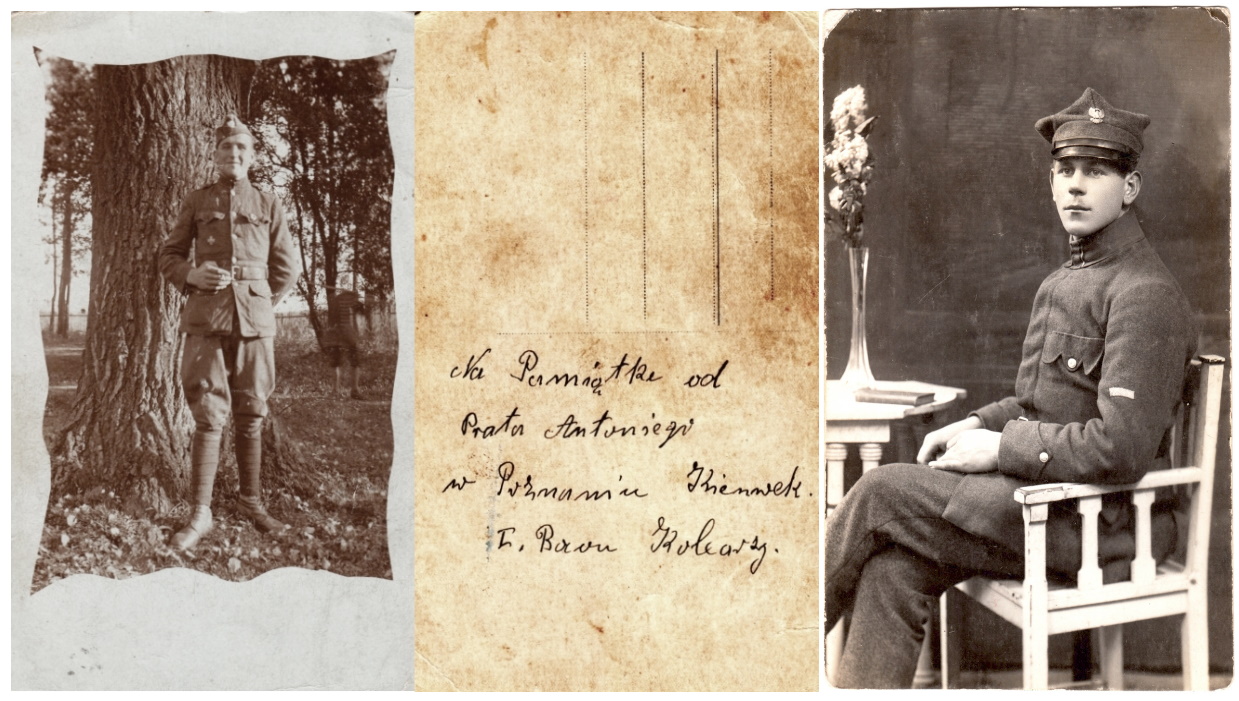 Na Pamiątke od
Prata Antoniego
w Poznaniu Kienwek.
I. Baon Kolearzy.